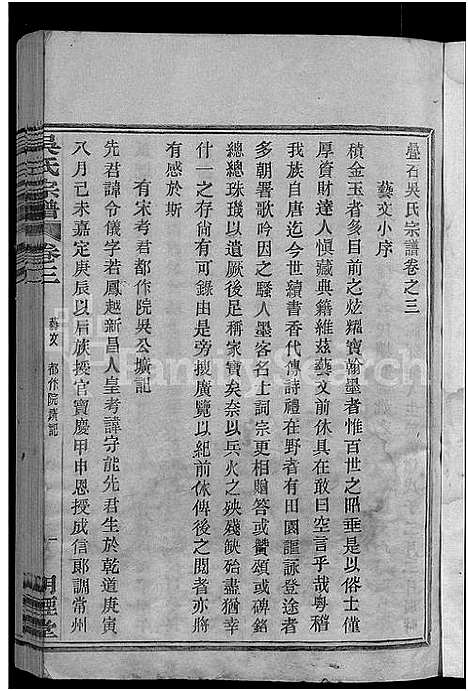 疊石吳氏宗譜卷之三
藝文小序
積金玉者多目前之炫耀寶翰墨者惟百世之昭垂是以俗士僅
厚資財達人愼藏典籍維茲藝文前休具在敢曰空言乎哉粵稽
我族自唐迄今世續書香代傳詩禮在野者有田園謳詠登途者
多朝署歌吟因之騷人墨客名士詞宗更相贈答或贊頌或碑銘
總總珠璣以遺厥後足稱家寶矣奈以兵火之殃殘缺殆盡猶幸
什一之存尙有由是旁搜廣覽以紀前休傳後之閱者亦將
有感於斯
有宋考君都作院吳公壙記
先君諱令儀字若鳳越新昌人皇考諱守能先君生於乾道庚寅
八月己未嘉定庚辰以肩族授官寶慶甲申恩授成信郎調常州
吳氏宗譜
卷三
藝文
都作院壙記
一
明經堂
FamilySearch